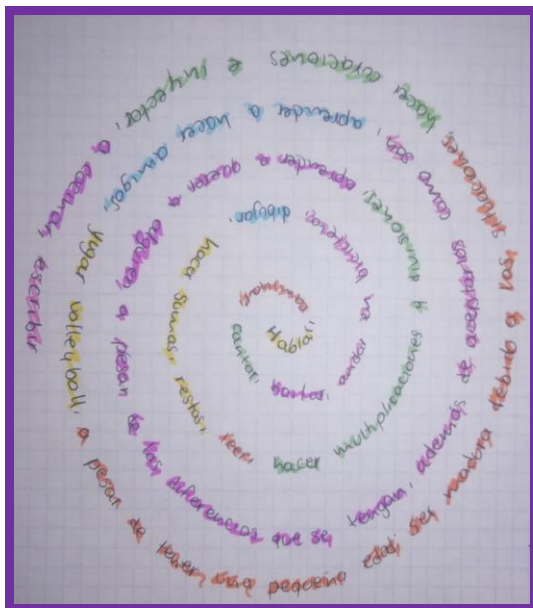 Hablar, cantar, bailar, andar en bicicleta, dibujar, hacer sumas, restas, leer hacer multiplicaciones y divisiones, aprender a querer a alguien, a pesar de las diferencias que se tengan, ademas de aceptarlas como son, aprender a hacer amigos, jugar volleyball, a pesar de tener una pequeña edad ser madura situaciones, hacer curaciones e inyectar, a cocinar, escribir